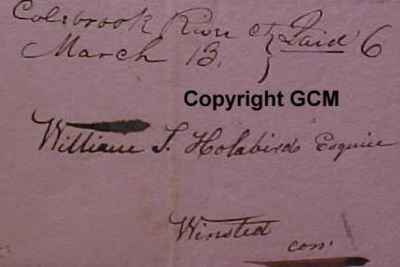 Colebrook River Ct } Paid 6
March 13.
Copyright GCM
William S. Holabird Esquire
Winsted
con.